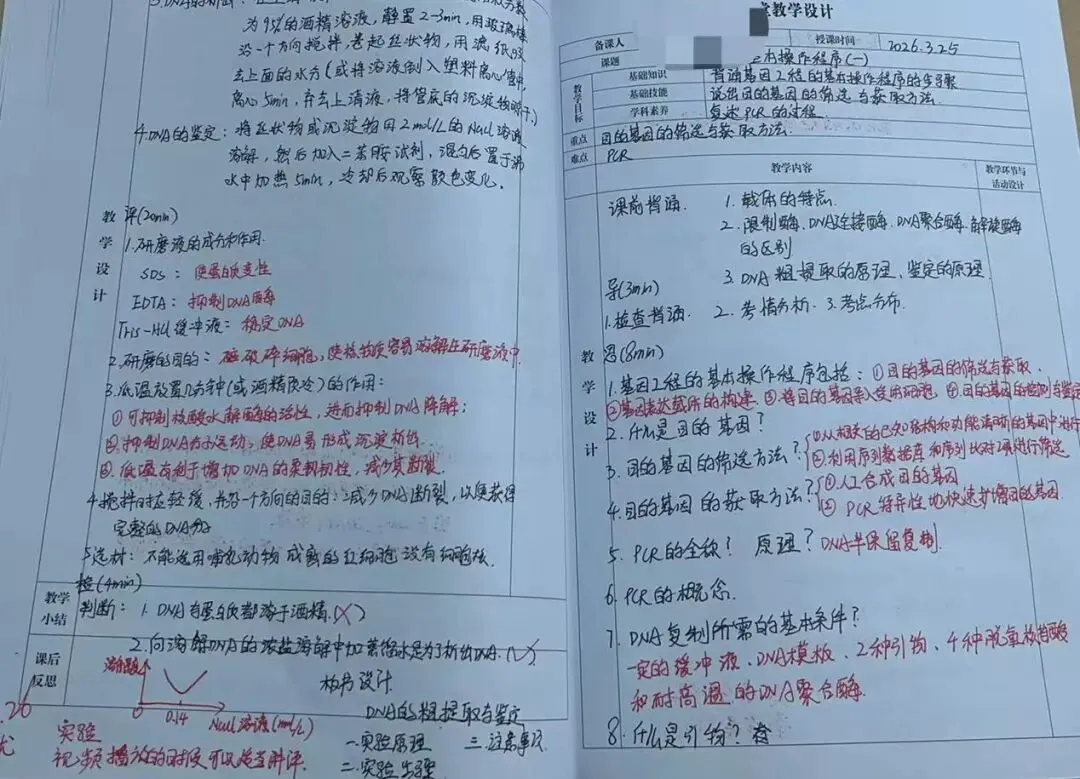 为95%的酒精溶液，静置2-3min，用玻璃棒
沿一个方向搅拌，卷起丝状物，用滤纸吸
去上面的水分（或将溶液倒入塑料离心管中，
离心5min，弃去上清液，将管底的沉淀物晾干。）
4.DNA的鉴定：将丝状物或沉淀物用2mol/L的NaCl溶液
溶解，然后加入二苯胺试剂，混匀后置于沸
水中加热5min，冷却后观察颜色变化。
教学设计
评(20min)
1.研磨液的成分和作用.
SDS：使蛋白质变性
EDTA：抑制DNA酶
Tris-HCl缓冲液：稳定DNA
2.研磨的目的：破碎细胞，使核物质容易溶解在研磨液中.
3.低温放置几分钟(或酒精预冷)的作用：
①可抑制核酸水解酶的活性，进而抑制DNA降解；
②抑制DNA分子运动，使DNA易形成沉淀析出
③.低温有利于增加DNA的柔韧性，减少其断裂.
4.搅拌时应轻缓，并沿一个方向的目的：减少DNA断裂，以便获得
完整的DNA分子
5.选材：不能选用哺乳动物成熟的红细胞 没有细胞核.
检(4min)
教学小结
判断：1.DNA与蛋白质都溶于酒精.(×)
2.向溶解DNA的浓盐溶解中加蒸馏水是为了析出DNA.(√)
课后反思
溶解度
0
0.14
NaCl溶液(mol/L)
板书设计
DNA的粗提取与鉴定
一.实验原理 三.注意事项
二.实验步骤
实验
视频播放的时候可以边走讲评.
堂教学设计
备课人
授课时间
2026.3.25
课题
本操作程序(一)
教学目标
基础知识
背诵基因工程的基本操作程序的步骤
基础技能
说出目的基因的筛选与获取方法.
学科素养
复述PCR的过程
重点
目的基因的筛选与获取方法.
难点
PCR
教学内容
教学环节与活动设计
课前背诵.
1.载体的特点.
2.限制酶、DNA连接酶、DNA聚合酶、解旋酶
的区别
3.DNA粗提取的原理、鉴定的原理.
导(3min)
1.检查背诵. 2.考情分析. 3.考点分布.
教学设计
思(8min)
1.基因工程的基本操作程序包括：①目的基因的筛选与获取、
②基因表达载体的构建 ③将目的基因导入受体细胞 ④目的基因的检测与鉴定
2.什么是目的基因？
3.目的基因的筛选方法？
①从相关的已知结构和功能清晰的基因中进行
②利用序列数据库和序列比对工具进行筛选
4.目的基因的获取方法？
①人工合成目的基因
②PCR特异性地快速扩增目的基因
5.PCR的全称？ 原理？DNA半保留复制.
6.PCR的概念.
7.DNA复制所需的基本条件？
一定的缓冲液、DNA模板、2种引物、4种脱氧核苷酸
和耐高温的DNA聚合酶.
8.什么是引物？